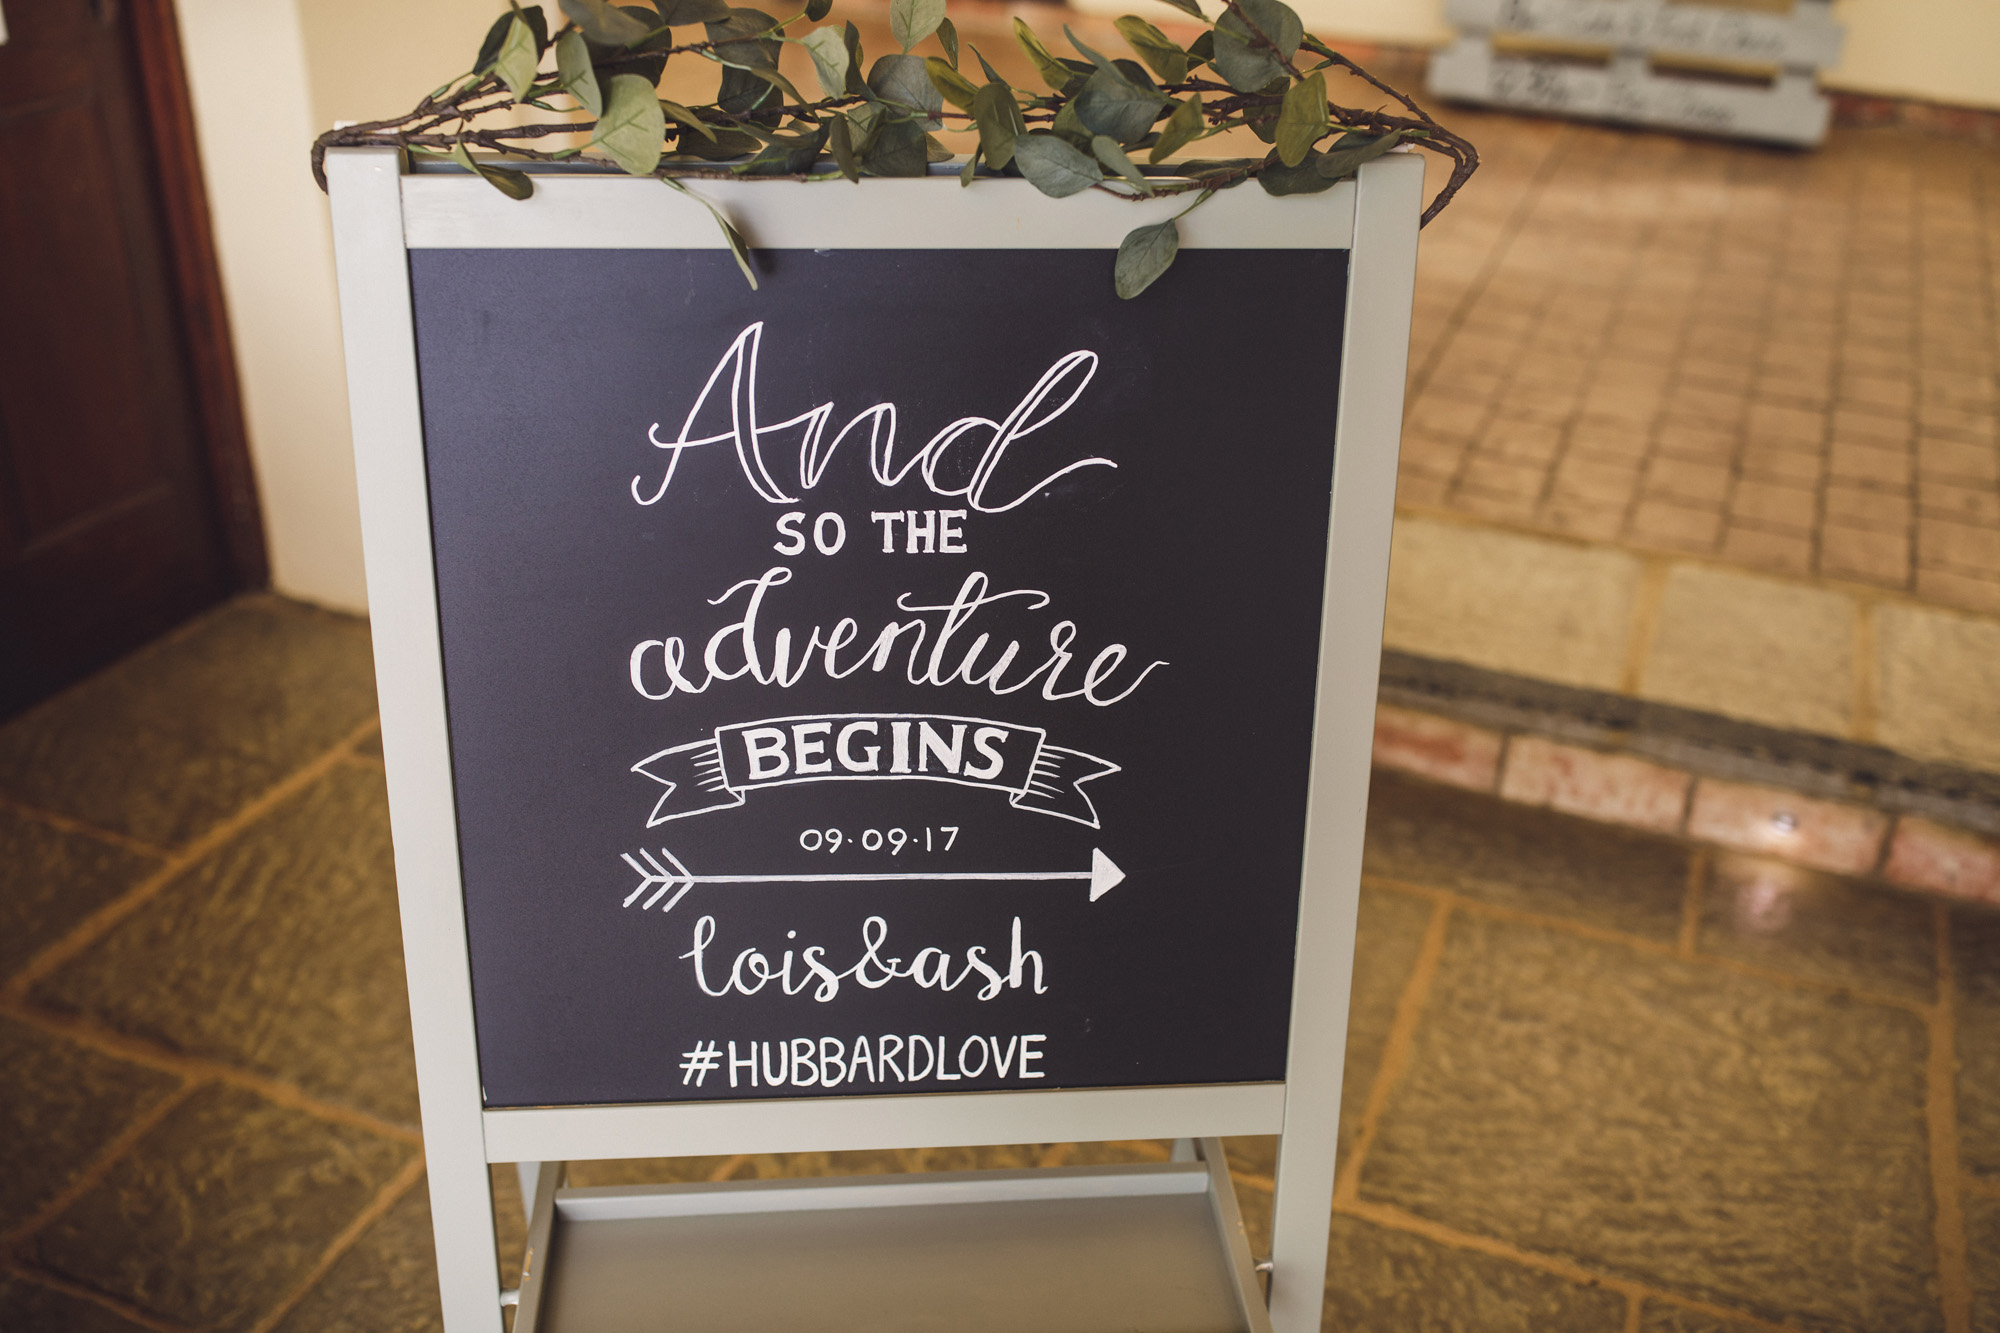 And
SO THE
adventure
BEGINS
09·09·17
lois&ash
#HUBBARDLOVE